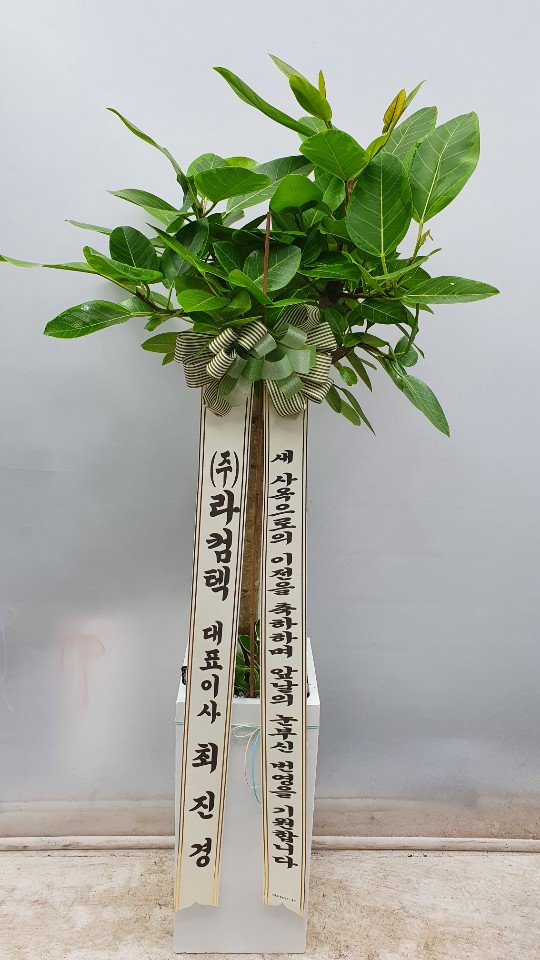 (주)라컴텍 대표이사 최진경
새 사옥으로의 이전을 축하하며 앞날의 눈부신 번영을 기원합니다